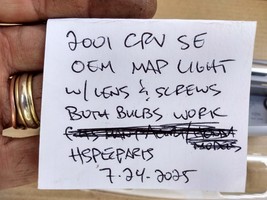 2001 CRV SE
OEM MAP LIGHT
W/ LENS & SCREWS
BOTH BULBS WORK
HSPEEPARTS
7-24-2025